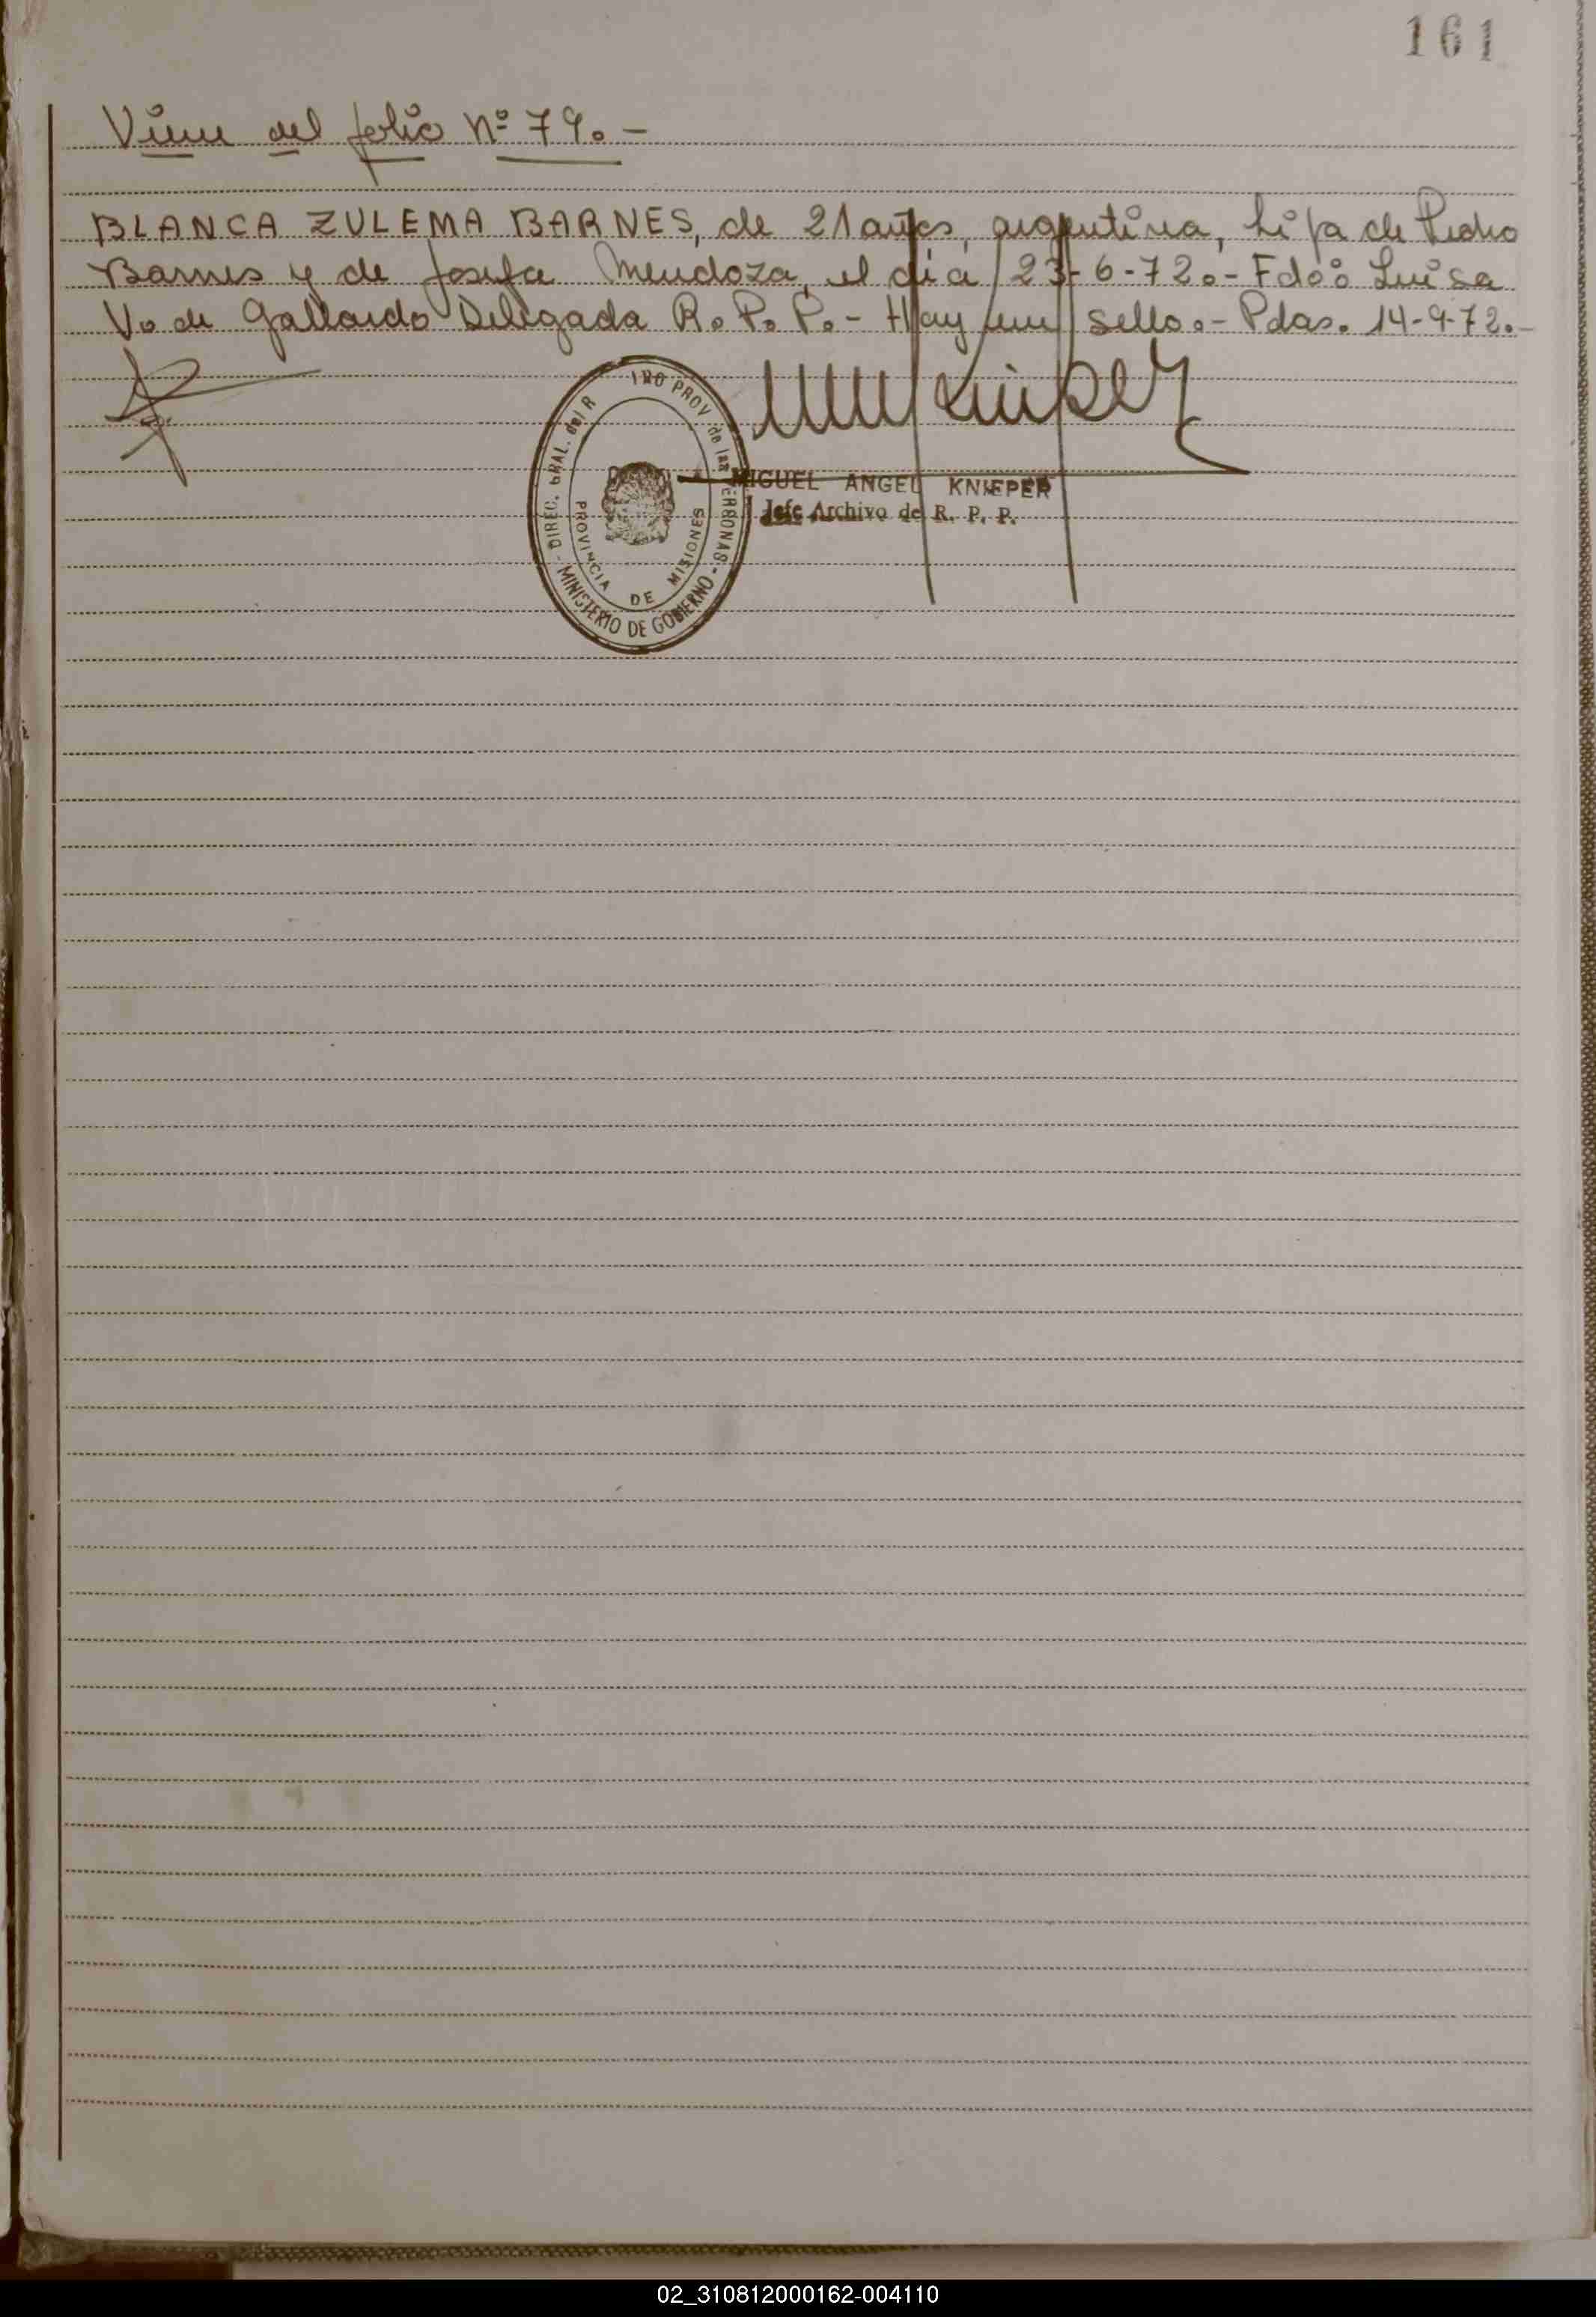 161
Viene del folio Nº 79.-
BLANCA ZULEMA BARNES, de 21 años, argentina, hija de Pedro
Barnes y de Josefa Mendoza, el día 23-6-72.- Fdo: Luisa
V. de Gallardo Delegada R. P. P.- Hay un sello.- Pdas. 14-9-72.-
DIREC. GRAL. del R TRO PROV de las ERSONAS - MINISTERIO DE GOBIERNO -
PROVINCIA DE MISIONES
MIGUEL ANGEL KNIEPER
Jefe Archivo de R. P. P.
02_310812000162-004110